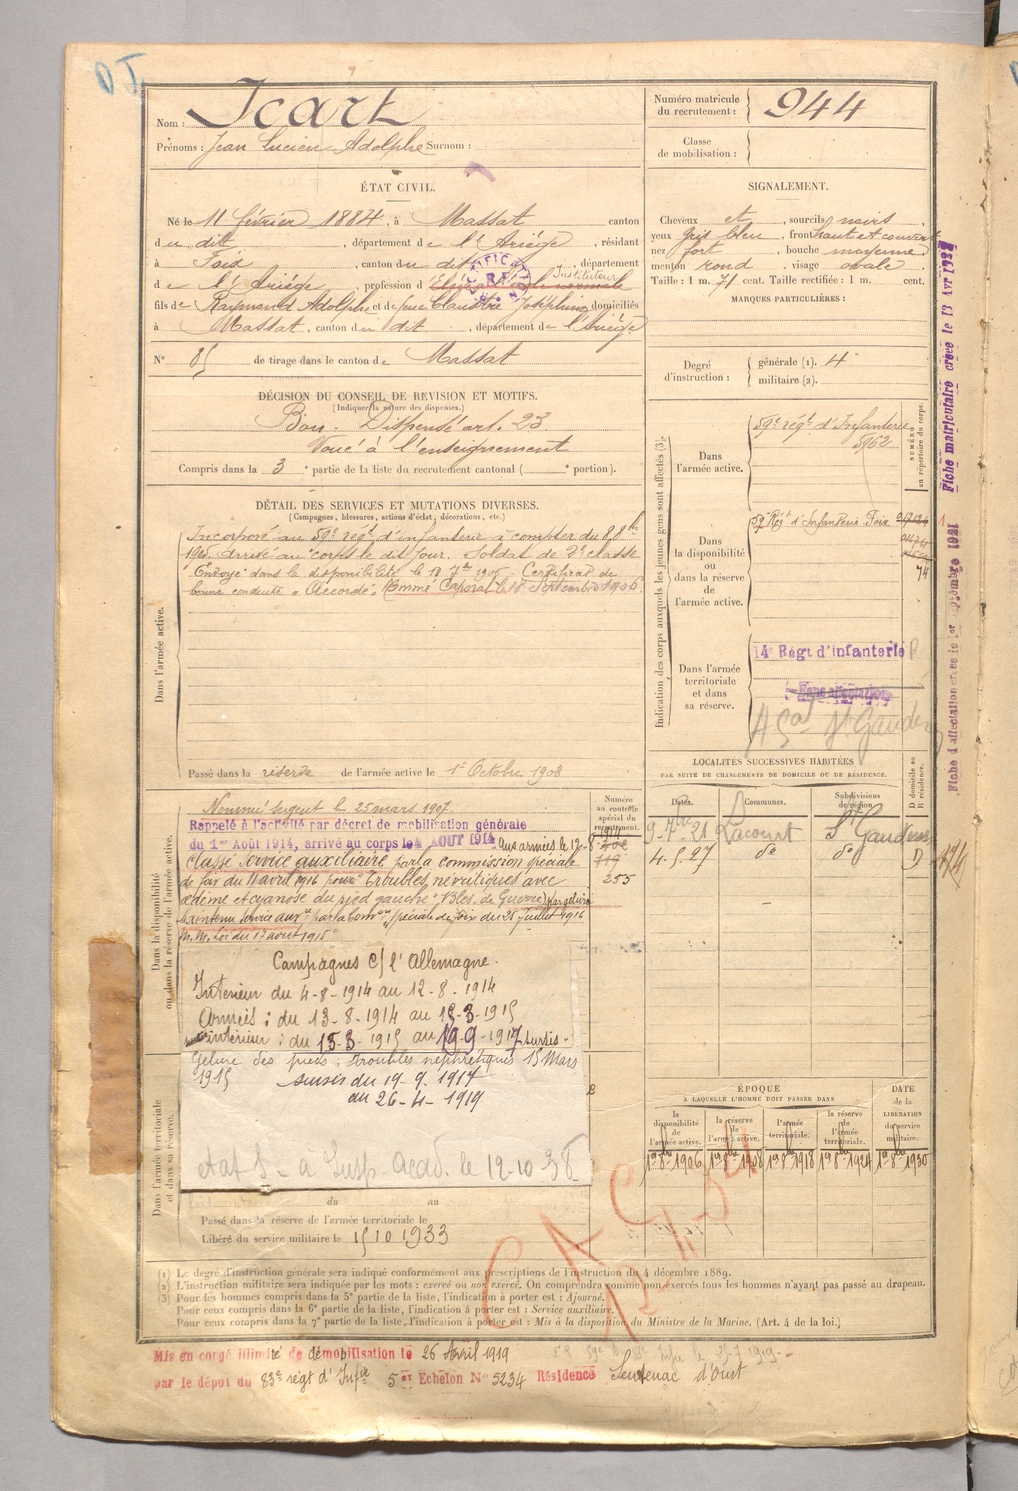 Nom : Icart
Prénoms : Jean Lucien Adolphe Surnom :
Numéro matricule du recrutement : 944
Classe de mobilisation :
ÉTAT CIVIL.
Né le 11 février 1884, à Massat canton
du dit, département de l'Ariège, résidant
à Foix, canton du dit, département
Instituteur
de l'Ariège, profession d'Elève à l'école normale
fils de Raymond Adolphe et de feue Claustre Joséphine domiciliés
à Massat, canton du dit, département de l'Ariège
N° 85 de tirage dans le canton de Massat
SIGNALEMENT.
Cheveux et, sourcils noirs
yeux gris bleu, front haut et couvert
nez fort, bouche moyenne
menton rond, visage ovale
Taille : 1 m. 71 cent. Taille rectifiée : 1 m. cent.
MARQUES PARTICULIÈRES :
Degré d'instruction : générale (1). 4
militaire (2).
DÉCISION DU CONSEIL DE REVISION ET MOTIFS.
(Indiquer la nature des dispenses.)
Bon. Dispensé art. 23
Voué à l'enseignement
Compris dans la 3e partie de la liste du recrutement cantonal ( e portion).
DÉTAIL DES SERVICES ET MUTATIONS DIVERSES.
(Campagnes, blessures, actions d'éclat, décorations, etc.)
Dans l'armée active.
Incorporé au 59e régt d'infanterie à compter du 8 8bre
1905. Arrivé au corps le dit jour. Soldat de 2e classe
Envoyé dans la disponibilité le 18 7bre 1906. Certificat de
bonne conduite "Accordé". Nommé Caporal le 18 Septembre 1906.
Passé dans la réserve de l'armée active le 1er Octobre 1908
Dans la disponibilité ou dans la réserve de l'armée active.
Nommé sergent le 25 mars 1907
Rappelé à l'activité par décret de mobilisation générale
du 1er Août 1914, arrivé au corps le 4 AOUT 1914 Aux armées le 12-8-1914
Classé service auxiliaire par la commission spéciale
de foix du 11 avril 1916 pour "Troubles névritiques avec
œdème et cyanose du pied gauche" Bles. de Guerre) par gelure
Maintenu service auxre par la Comon spéciale de foix du 25 juillet 1916
M.M. Loi du 17 aout 1915
Numéro au contrôle spécial du recrutement.
119
255
Campagnes c/ l'Allemagne.
Intérieur du 4-8-1914 au 12-8-1914
Armées : du 13-8-1914 au 15-3-1915
intérieur : du 15-3-1915 au 19-9-1917 sursis.
Gelure des pieds ; troubles nephretiques 15 Mars
1915
sursis du 19-9-1917
au 26-4-1919
Dans l'armée territoriale et dans sa réserve.
à Insp. Acad. le 12-10-38
du au
Passé dans la réserve de l'armée territoriale le
Libéré du service militaire le 15 10 1933
Indication des corps auxquels les jeunes gens sont affectés (3).
NUMÉRO au répertoire du corps.
Dans l'armée active.
59e régt d'Infanterie
5962
Dans la disponibilité ou dans la réserve de l'armée active.
59e Régt d'Infanterie Foix
74
Dans l'armée territoriale et dans sa réserve.
14e Régt d'infanterie
Sans affectation
St Gaudens
LOCALITÉS SUCCESSIVES HABITÉES
PAR SUITE DE CHANGEMENTS DE DOMICILE OU DE RÉSIDENCE.
Dates. Communes. Subdivisions de région. D domicile ou R résidence.
9-7bre-21 Lacourt St Gaudens
4.5.27 do do D
ÉPOQUE
A LAQUELLE L'HOMME DOIT PASSER DANS
la disponibilité de l'armée active. la réserve de l'armée active. l'armée territoriale. la réserve de l'armée territoriale. DATE de la LIBÉRATION du service militaire.
1er 8bre 1906 1er 8bre 1908 1er 8bre 1918 1er 8bre 1924 1er 8bre 1930
(1) Le degré d'instruction générale sera indiqué conformément aux prescriptions de l'instruction du 4 décembre 1889.
(2) L'instruction militaire sera indiquée par les mots : exercé ou non exercé. On comprendra comme non exercés tous les hommes n'ayant pas passé au drapeau.
(3) Pour les hommes compris dans la 5e partie de la liste, l'indication à porter est : Ajourné.
Pour ceux compris dans la 6e partie de la liste, l'indication à porter est : Service auxiliaire.
Pour ceux compris dans la 7e partie de la liste, l'indication à porter est : Mis à la disposition du Ministre de la Marine. (Art. 4 de la loi.)
Mis en congé illimité de démobilisation le 26 Avril 1919
par le dépot du 83e régt d'Infie 5e Echelon N° 5234 Résidence Sentenac d'Oust
Fiche d'affectation créée le 1er Septembre 1921
Fiche matriculaire créée le 13 Avr 1922